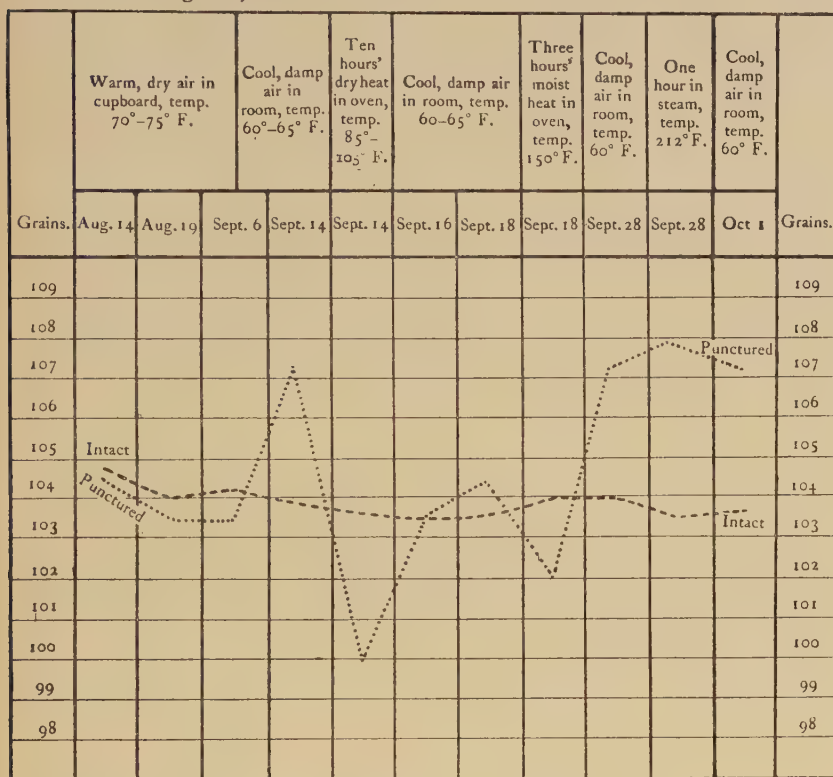 Warm, dry air in
cupboard, temp.
70°–75° F.
Cool, damp
air in
room, temp.
60°–65° F.
Ten
hours'
dry heat
in oven,
temp.
85°–
105° F.
Cool, damp air
in room, temp.
60–65° F.
Three
hours'
moist
heat in
oven,
temp.
150° F.
Cool,
damp
air in
room,
temp.
60° F.
One
hour in
steam,
temp.
212° F.
Cool,
damp
air in
room,
temp.
60° F.
Grains. Aug. 14 Aug. 19 Sept. 6 Sept. 14 Sept. 14 Sept. 16 Sept. 18 Sept. 18 Sept. 28 Sept. 28 Oct 1 Grains.
109 109
108 108
Punctured
107 107
106 106
105 Intact 105
104 Punctured 104
103 Intact 103
102 102
101 101
100 100
99 99
98 98